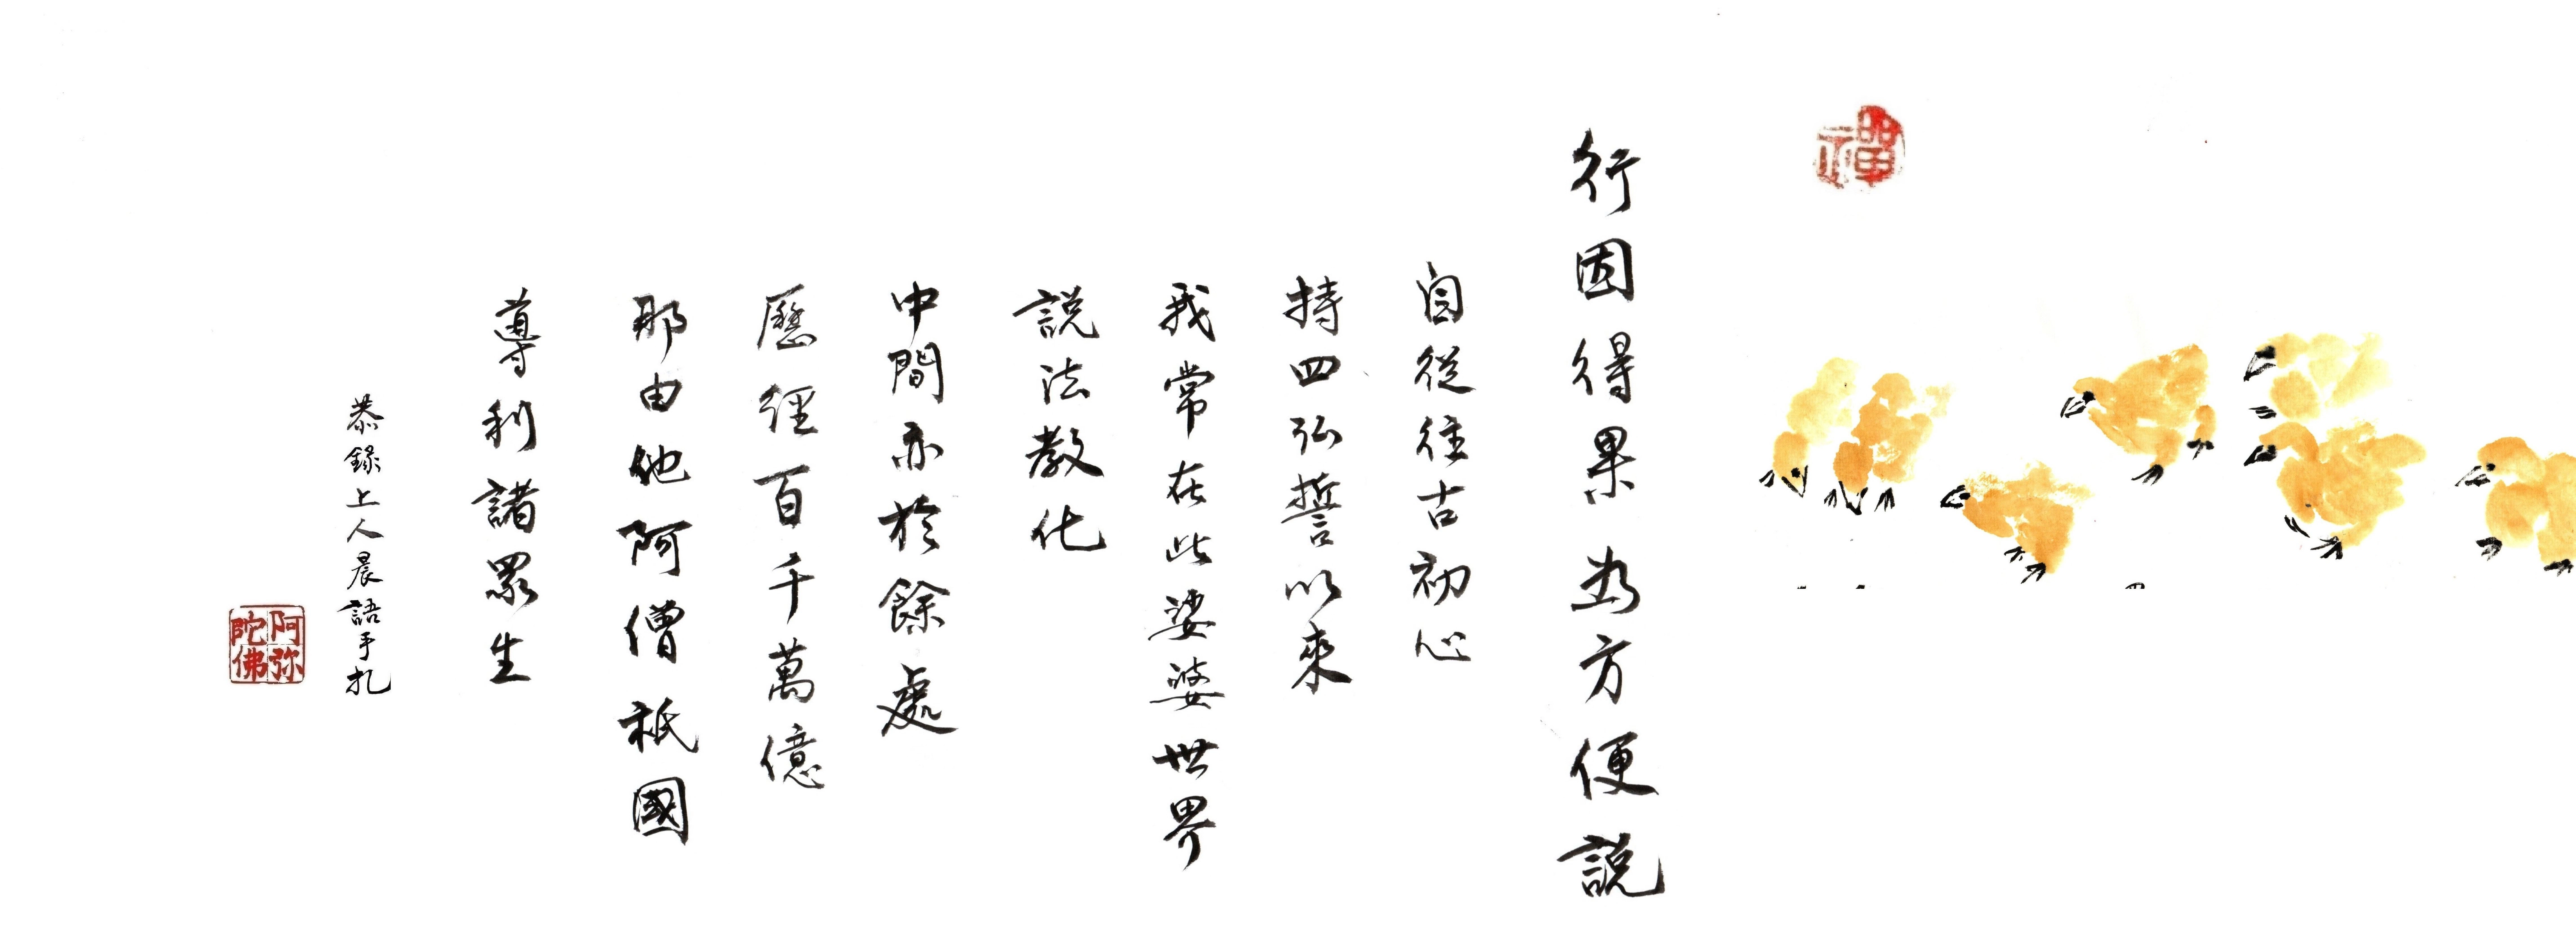 禪
行因得果為方便說
自從往古初心
持四弘誓以來
我常在此娑婆世界
說法教化
中間亦於餘處
歷經百千萬億
那由他阿僧祇國
導利諸眾生
恭錄上人晨語手扎
阿弥陀佛